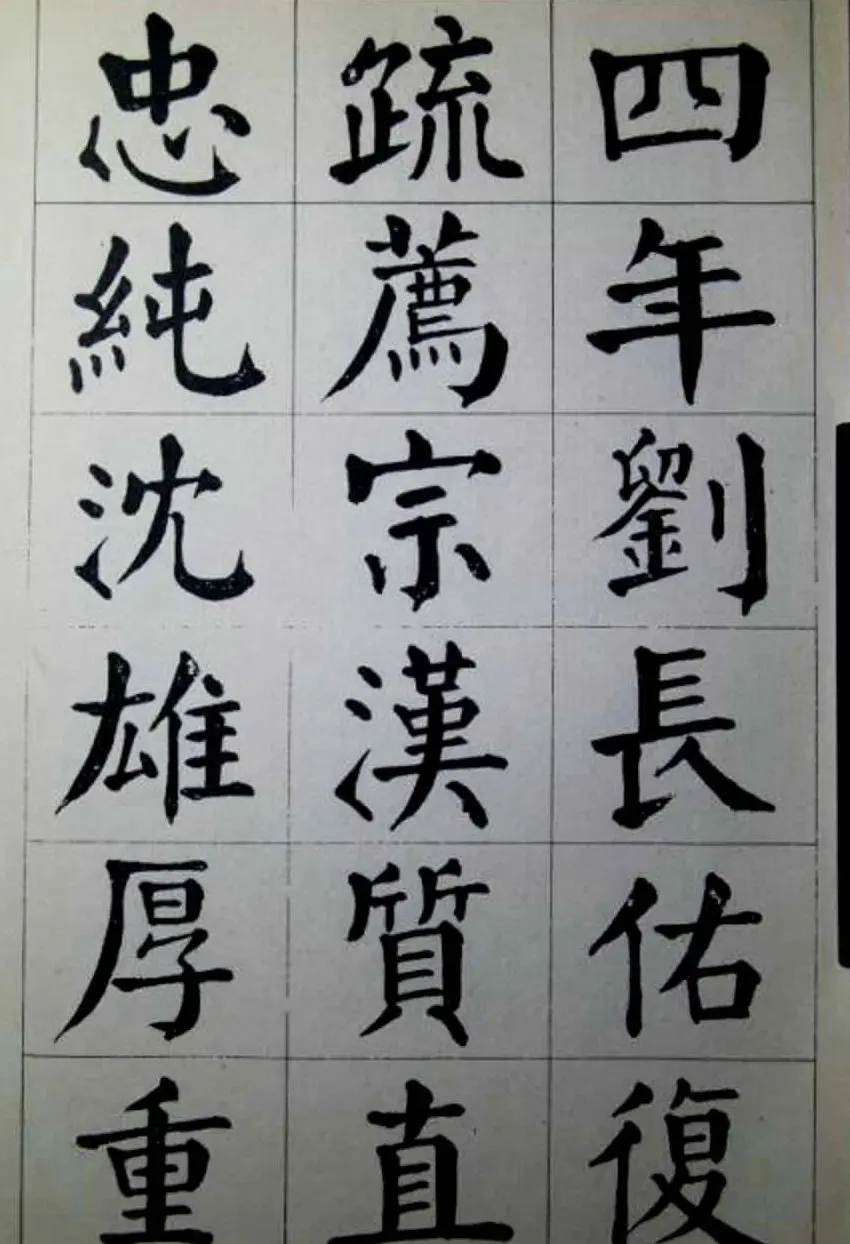 四年劉長佑復
疏薦宗漢質直
忠純沈雄厚重